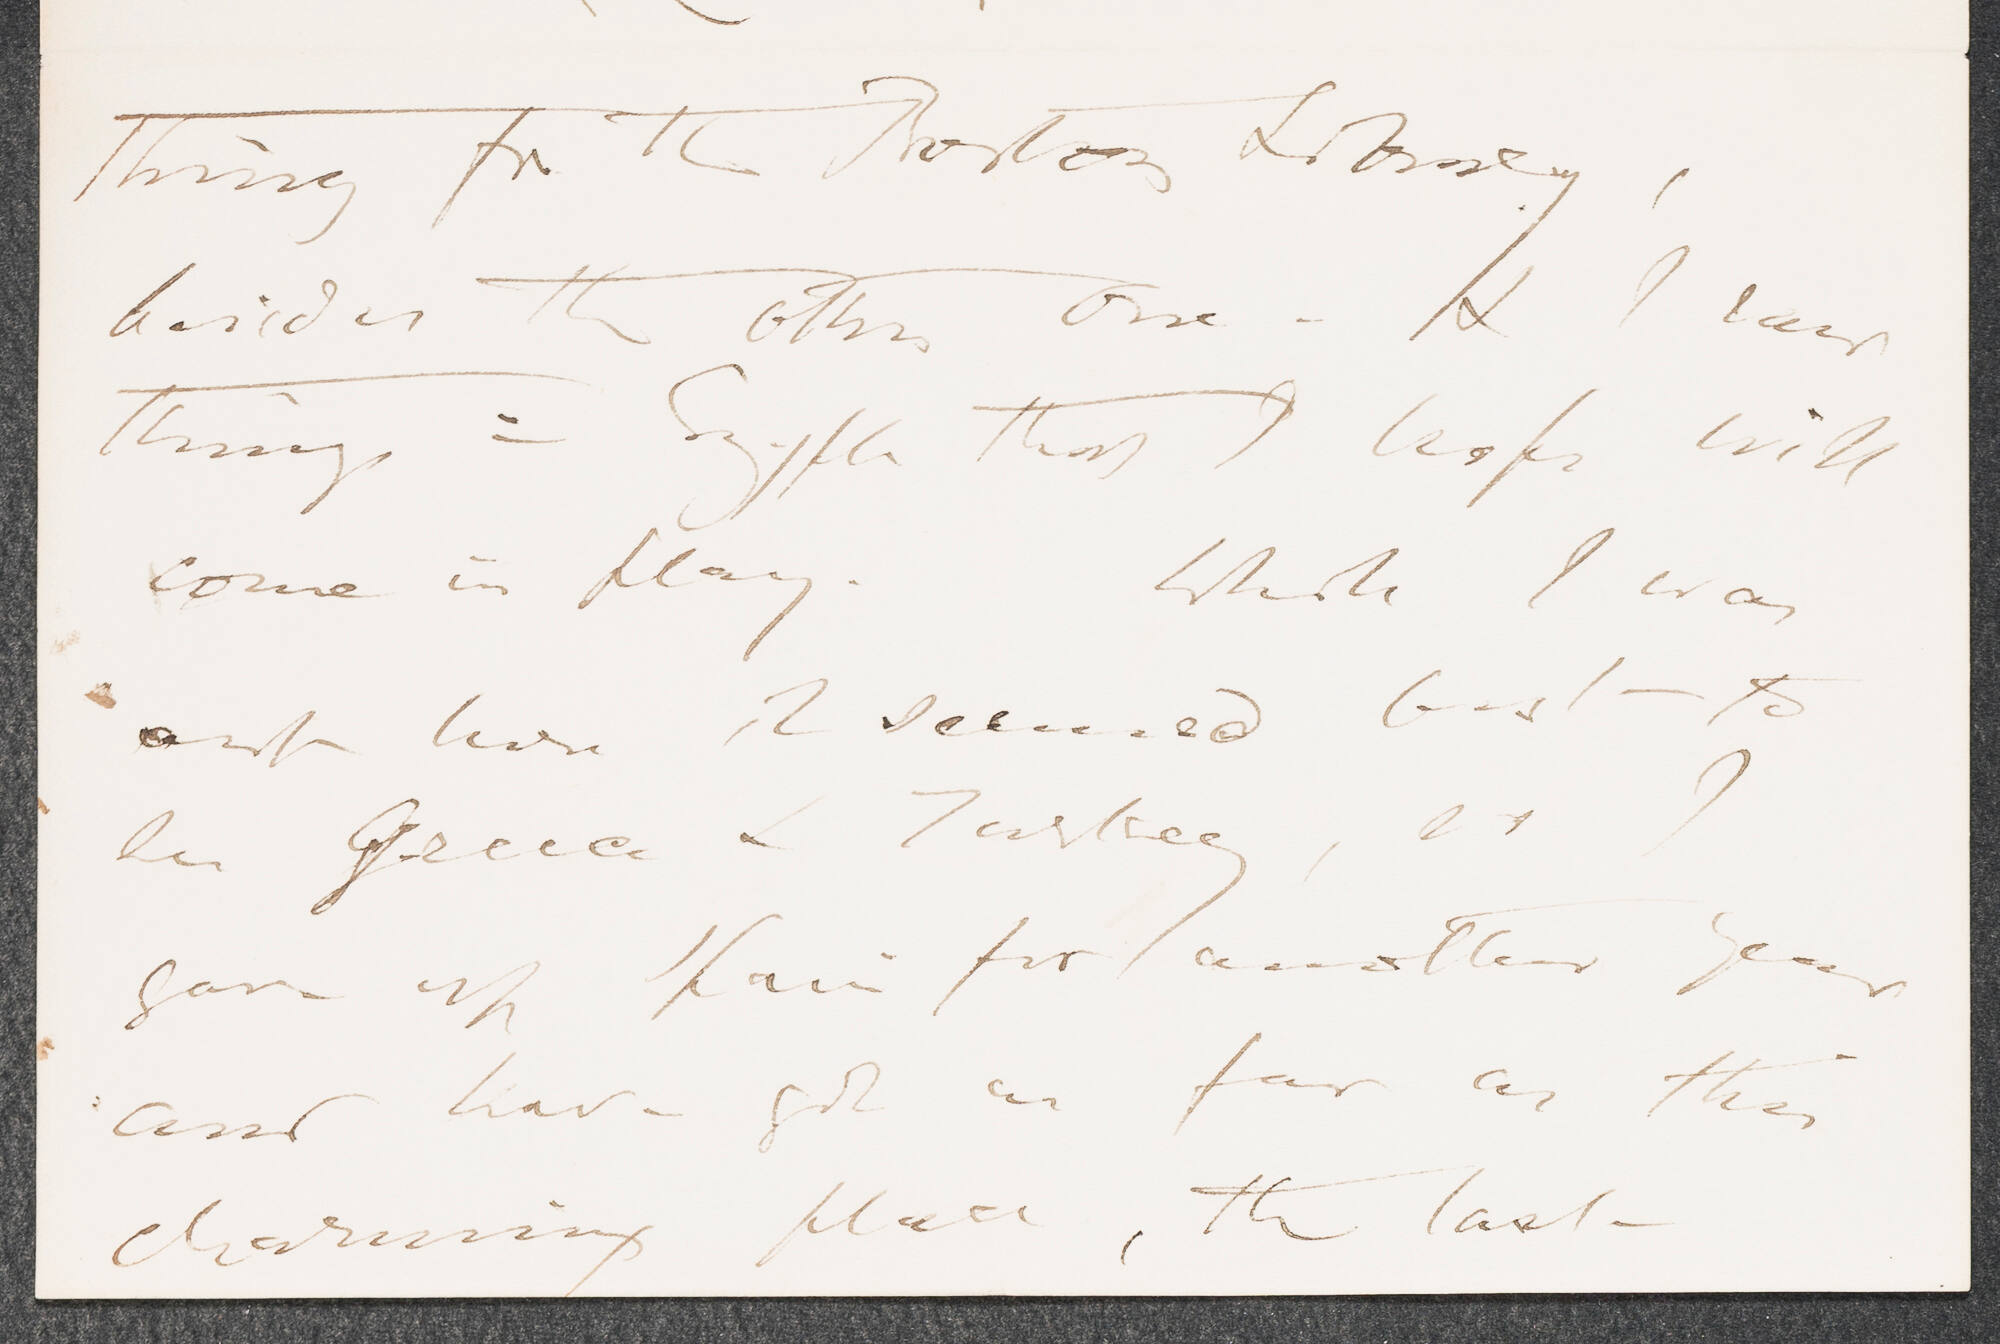 thing for the Boston Library,
besides the other one - & I saw
things in Egypt that I hope will
come in play. While I was
out here it seemed best to
see Greece & Turkey, so I
gave up Spain for another year
and have got as far as this
charming place, the last